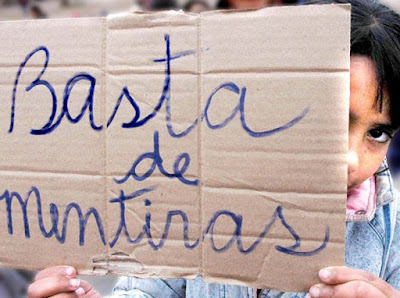 Basta
de
mentiras